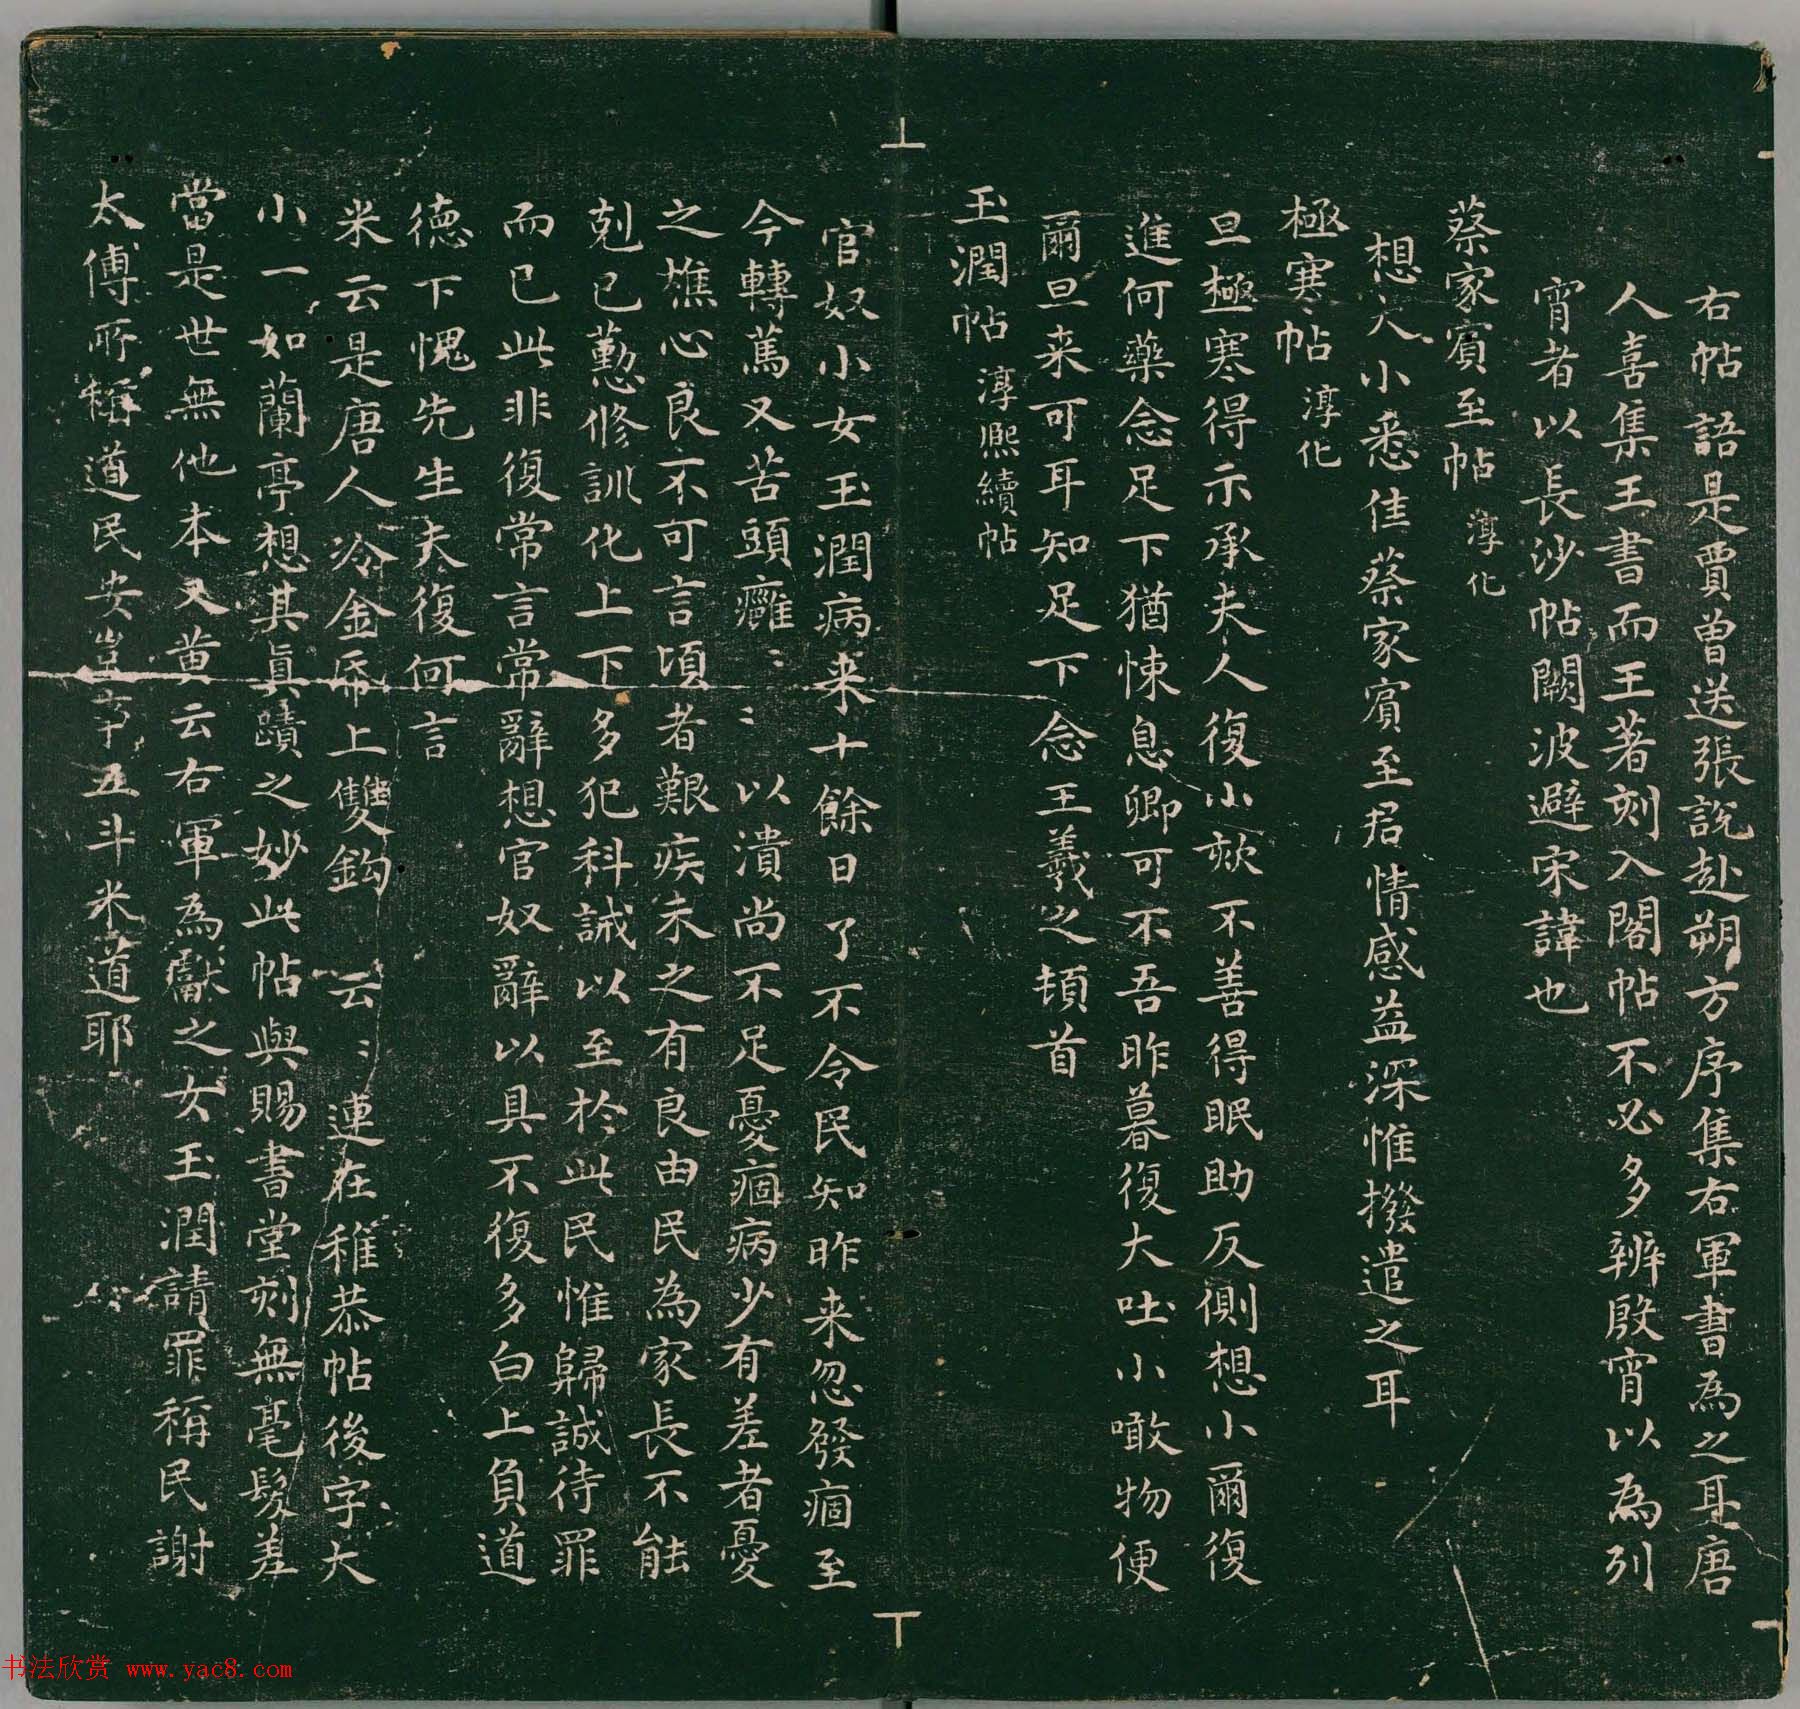 右帖語是賈曾送張說赴朔方序集右軍書為之耳唐
人喜集王書而王著刻入閣帖不必多辨殷宵以為列
宵者以長沙帖闕波避宋諱也
蔡家賓至帖 淳化
想大小悉佳蔡家賓至君情感益深惟撥遣之耳
極寒帖 淳化
旦極寒得示承夫人復小欬不善得眠助反側想小爾復
進何藥念足下猶悚息卿可不吾昨暮復大吐小噉物便
爾旦来可耳知足下念王羲之頓首
玉潤帖 淳熙續帖
官奴小女玉潤病来十餘日了不令民知昨来忽發痼至
今轉蔫又苦頭癰〻〻以潰尚不足憂痼病少有差者憂
之燋心良不可言頃者艱疾未之有良由民為家長不能
剋己懃修訓化上下多犯科誡以至於此民惟歸誠待罪
而已此非復常言常辭想官奴辭以具不復多白上負道
德下愧先生夫復何言
米云是唐人冷金帋上雙鈎 云〻連在稚恭帖後字大
小一如蘭亭想其真蹟之妙此帖與賜書堂刻無毫髮差
當是世無他本又黄云右軍為獻之女玉潤請罪稱民謝
太傅所稱道民安豈亨五斗米道耶
书法欣赏 www.yac8.com